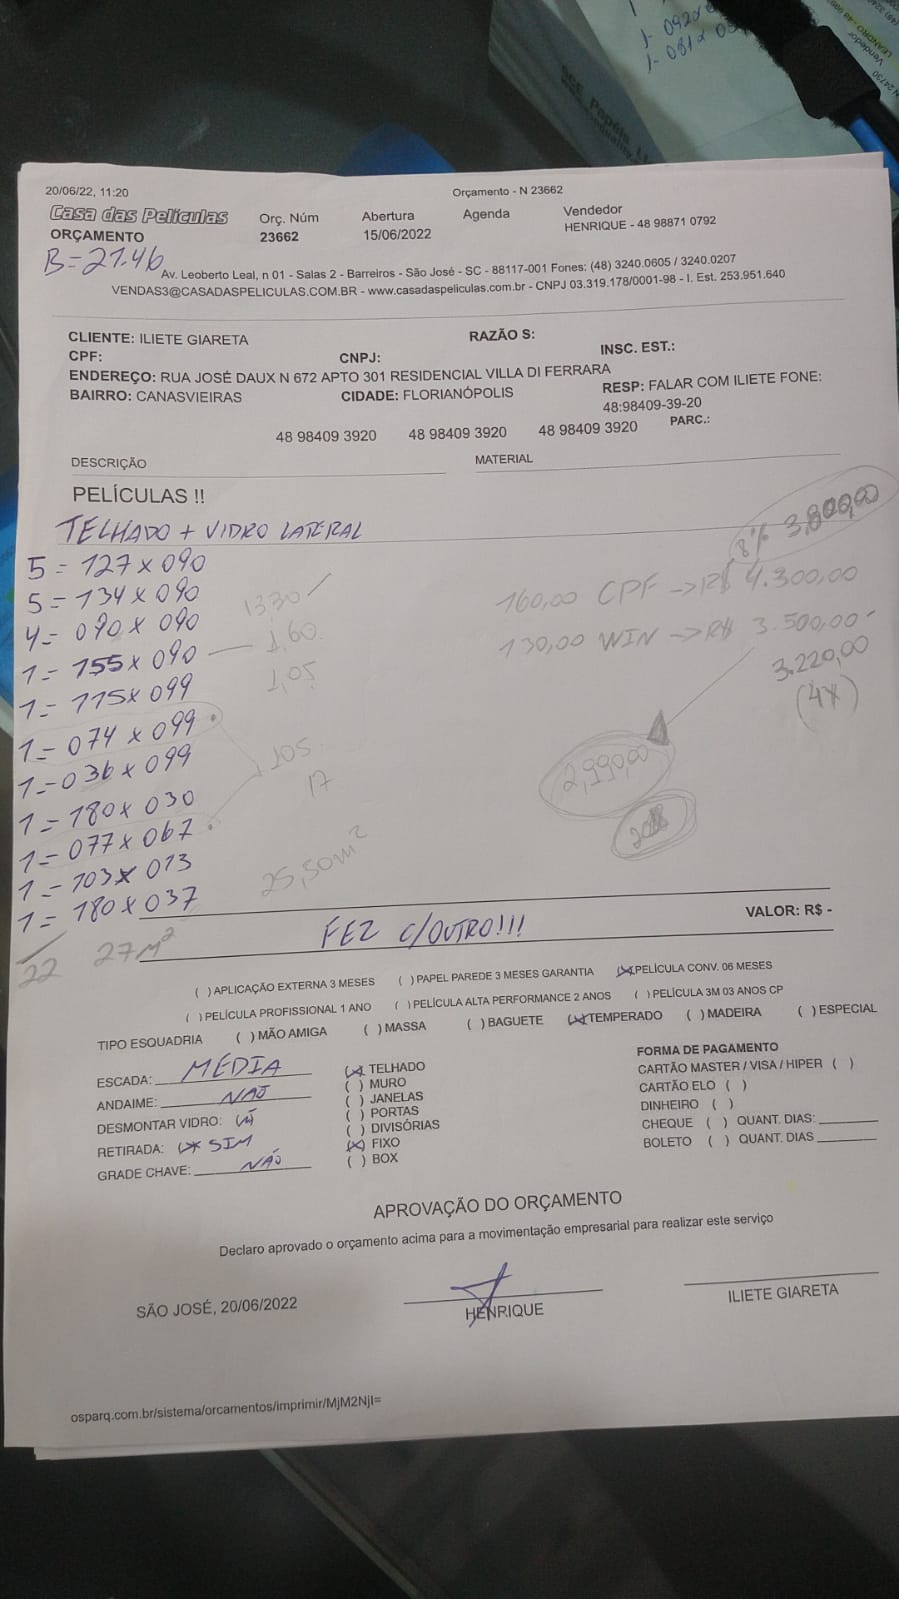 1- 092x
1- 081x
Vendedor
LEANDRO - 48
N 24730
20/06/22, 11:20
Orçamento - N 23662
Casa das Películas
Orç. Núm
Abertura
Agenda
Vendedor
ORÇAMENTO
23662
15/06/2022
HENRIQUE - 48 98871 0792
B=21.46
Av. Leoberto Leal, n 01 - Salas 2 - Barreiros - São José - SC - 88117-001 Fones: (48) 3240.0605 / 3240.0207
VENDAS3@CASADASPELICULAS.COM.BR - www.casadaspeliculas.com.br - CNPJ 03.319.178/0001-98 - I. Est. 253.951.640
CLIENTE: ILIETE GIARETA
RAZÃO S:
CPF:
CNPJ:
INSC. EST.:
ENDEREÇO: RUA JOSÉ DAUX N 672 APTO 301 RESIDENCIAL VILLA DI FERRARA
BAIRRO: CANASVIEIRAS
CIDADE: FLORIANÓPOLIS
RESP: FALAR COM ILIETE FONE:
48:98409-39-20
48 98409 3920 48 98409 3920 48 98409 3920
PARC.:
DESCRIÇÃO
MATERIAL
PELÍCULAS !!
TELHADO + VIDRO LATERAL
8% 3.800,00
5 = 127 x 090
5 = 134 x 090
13,30
160,00 CPF -> R$ 4.300,00
4 = 090 x 090
1,60
130,00 WIN -> R$ 3.500,00-
1 = 155 x 090
1,05
3.220,00
1 = 115 x 099
(4x)
1 = 074 x 099
105
1 = 036 x 099
17
2,990,00
1 = 180 x 030
1 = 077 x 067
25,50m²
1 = 103 x 013
1 = 180 x 037
22 27m²
FEZ C/OUTRO!!!
VALOR: R$ -
( ) APLICAÇÃO EXTERNA 3 MESES ( ) PAPEL PAREDE 3 MESES GARANTIA (x) PELÍCULA CONV. 06 MESES
( ) PELÍCULA PROFISSIONAL 1 ANO ( ) PELÍCULA ALTA PERFORMANCE 2 ANOS ( ) PELÍCULA 3M 03 ANOS CP
TIPO ESQUADRIA ( ) MÃO AMIGA ( ) MASSA ( ) BAGUETE (x) TEMPERADO ( ) MADEIRA ( ) ESPECIAL
ESCADA: MEDIA
ANDAIME: NAO
DESMONTAR VIDRO: (N)
RETIRADA: (x SIM
GRADE CHAVE: NÃO
(x) TELHADO
( ) MURO
( ) JANELAS
( ) PORTAS
( ) DIVISÓRIAS
(x) FIXO
( ) BOX
FORMA DE PAGAMENTO
CARTÃO MASTER / VISA / HIPER ( )
CARTÃO ELO ( )
DINHEIRO ( )
CHEQUE ( ) QUANT. DIAS:
BOLETO ( ) QUANT. DIAS
APROVAÇÃO DO ORÇAMENTO
Declaro aprovado o orçamento acima para a movimentação empresarial para realizar este serviço
SÃO JOSÉ, 20/06/2022
HENRIQUE
ILIETE GIARETA
osparq.com.br/sistema/orcamentos/imprimir/MjM2NjI=